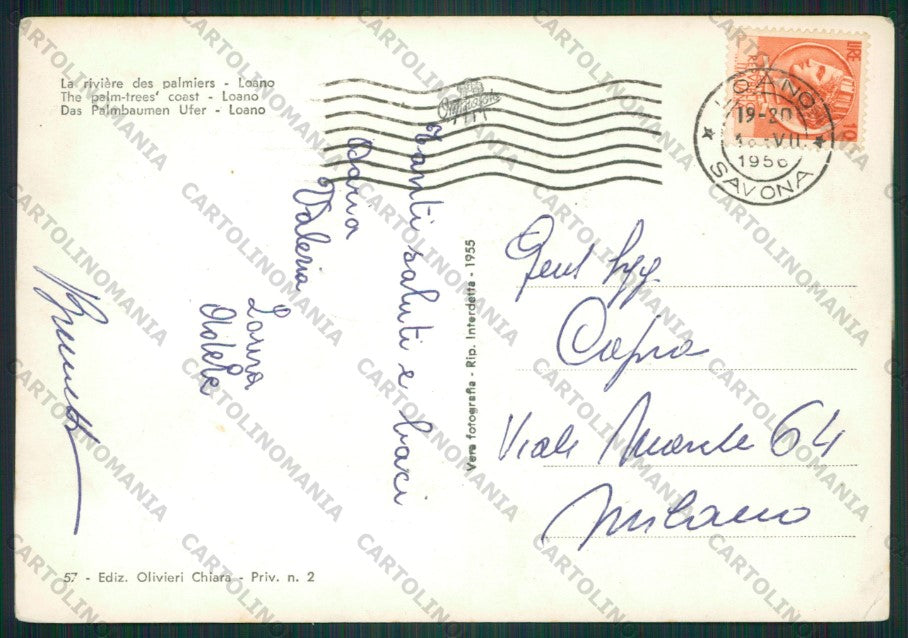 La rivière des palmiers - Loano
The palm-trees' coast - Loano
Das Palmbaumen Ufer - Loano
LOANO
19-20
VII
1956
SAVONA
LIRE
10
Tanti saluti e baci
Daria
Valeria
Laura
Vera fotografia - Rip. Interdetta - 1955
Gent
Capra
Viale Monte 64
Milano
57 - Ediz. Olivieri Chiara - Priv. n. 2
CARTOLINOMANIA